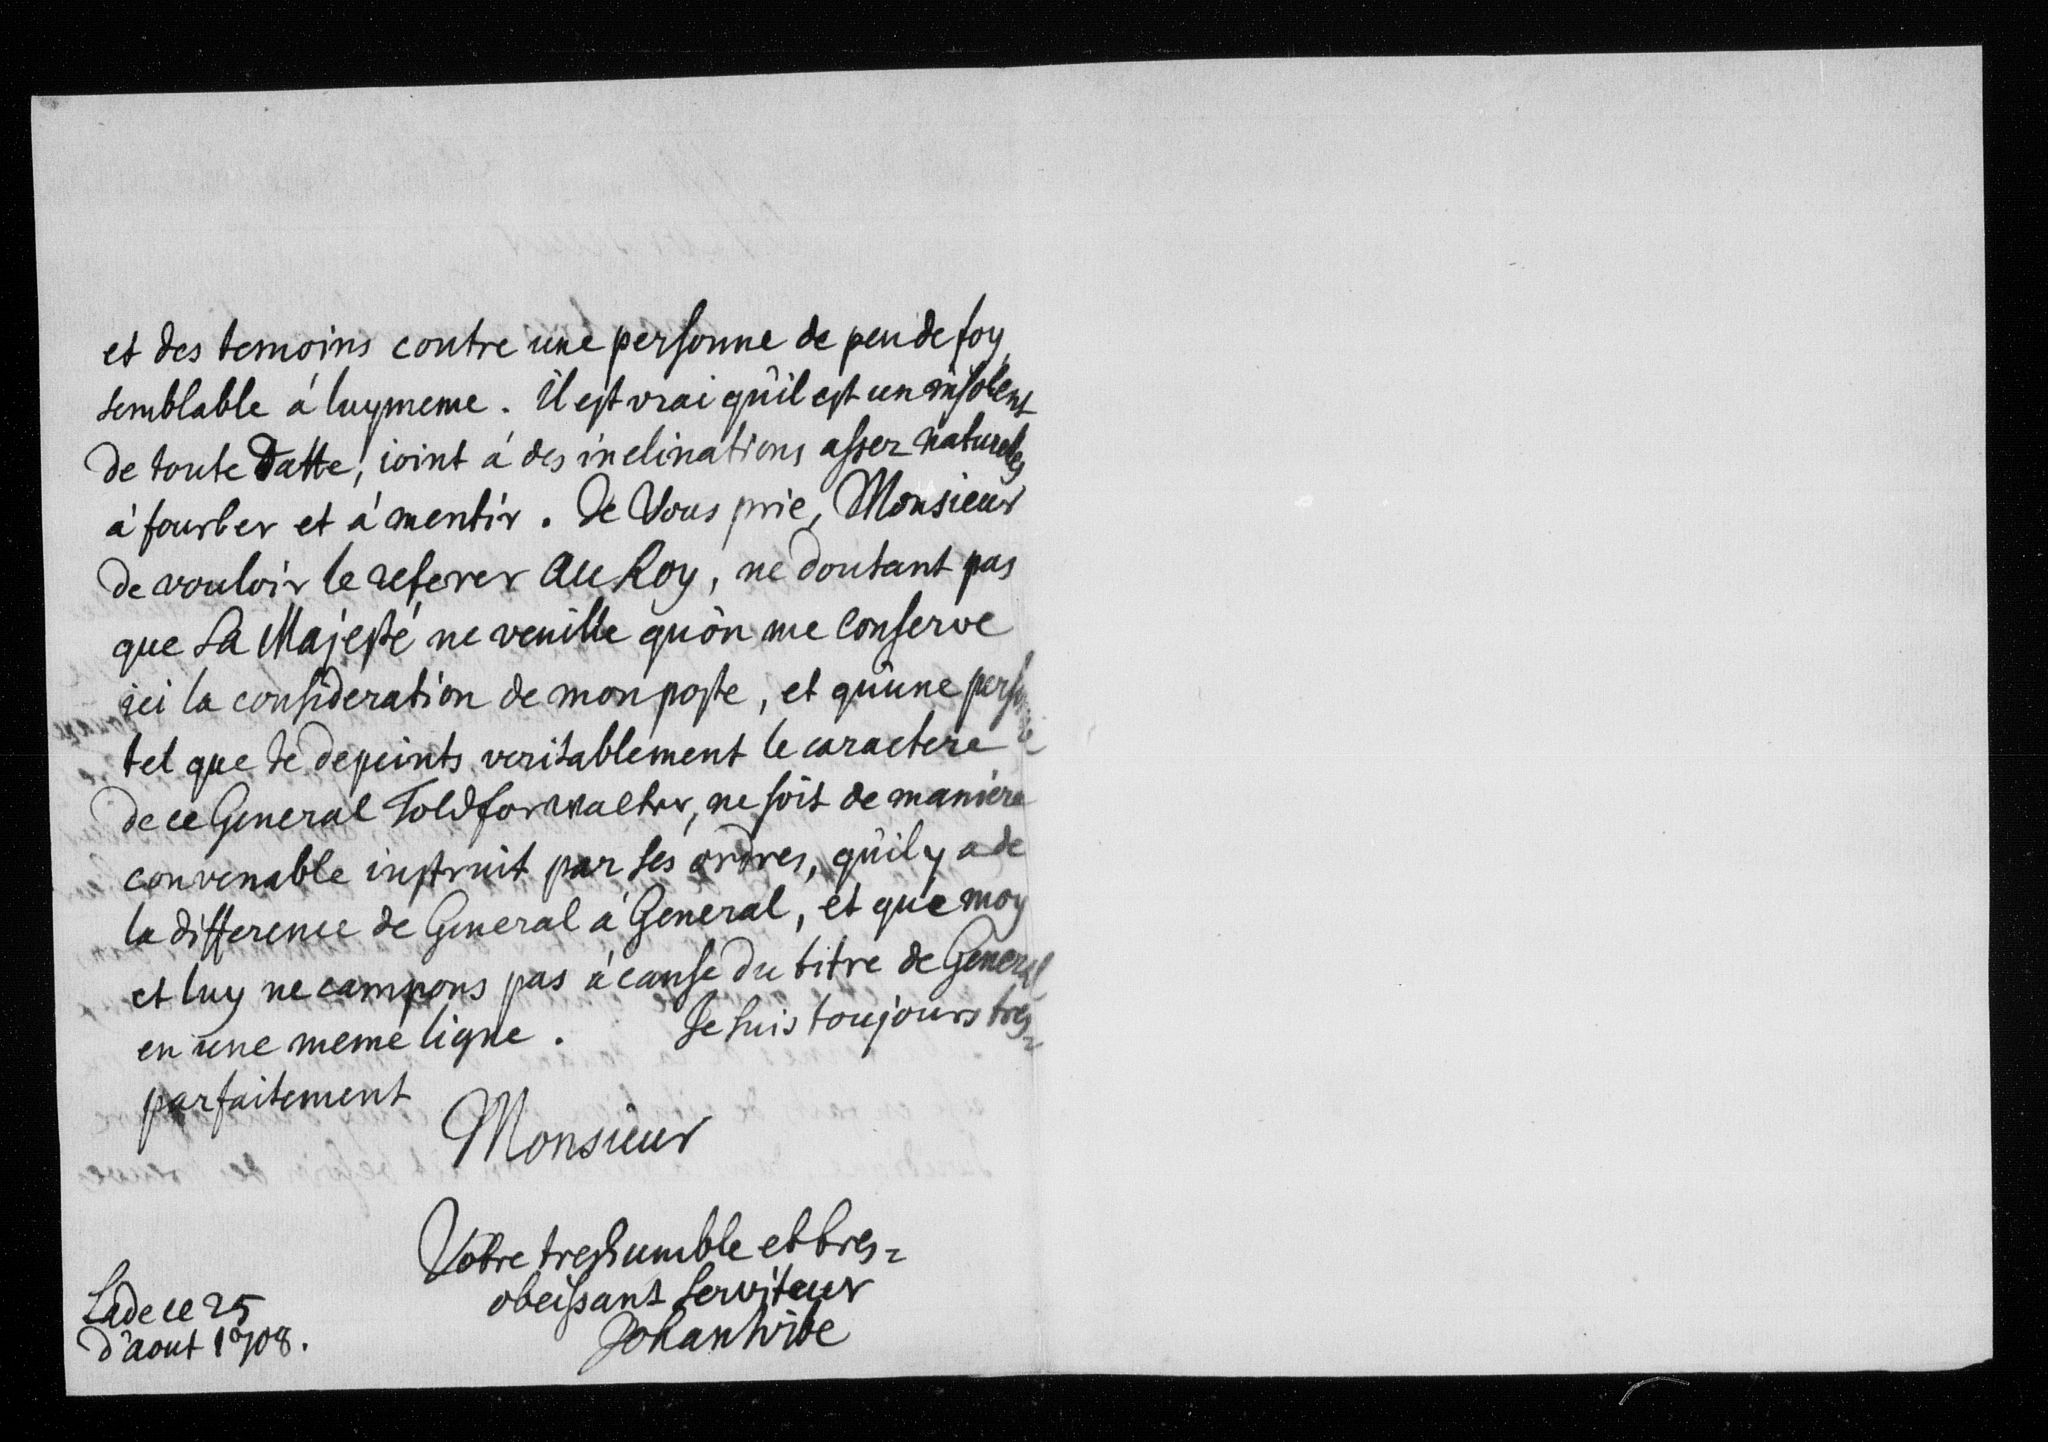 et des temoins contre une personne de peu de foy
semblable á luymeme. Il est vrai qu'il est un insolent
de toute Datte, ioint á des inclinations assez naturelles
á fourber et á mentir. Je Vous prie, Monsieur
de vouloir le referer au Roy, ne doutant pas
que Sa Majesté ne veuille qu'on me conserve
ici la consideration de mon poste, et qu'une personne
tel que Je depeints veritablement le caractere
de ce General Toldforvalter, ne soit de maniere
convenable instruit par ses ordres, qu'il y a de
la difference de General á General, et que moy
et luy ne campons pas á cause du titre de General
en une meme ligne. Je suis toujours tres=
parfaitement
Monsieur
Votre treshumble et tres=
obeissant serviteur
Johan Wibe
Lade ce 25
d'aout 1708.